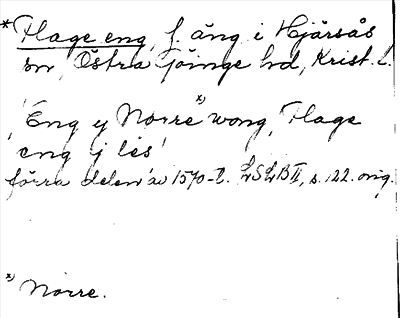 *Flage eng, f. äng i Hjärsås
sn, Östra Göinge hd, Krist. l.
'Eng y Norre x) wong, Flage
eng j lés'
förra delen av 1570-t. LSLB II, s. 122. orig.
x) Norre.